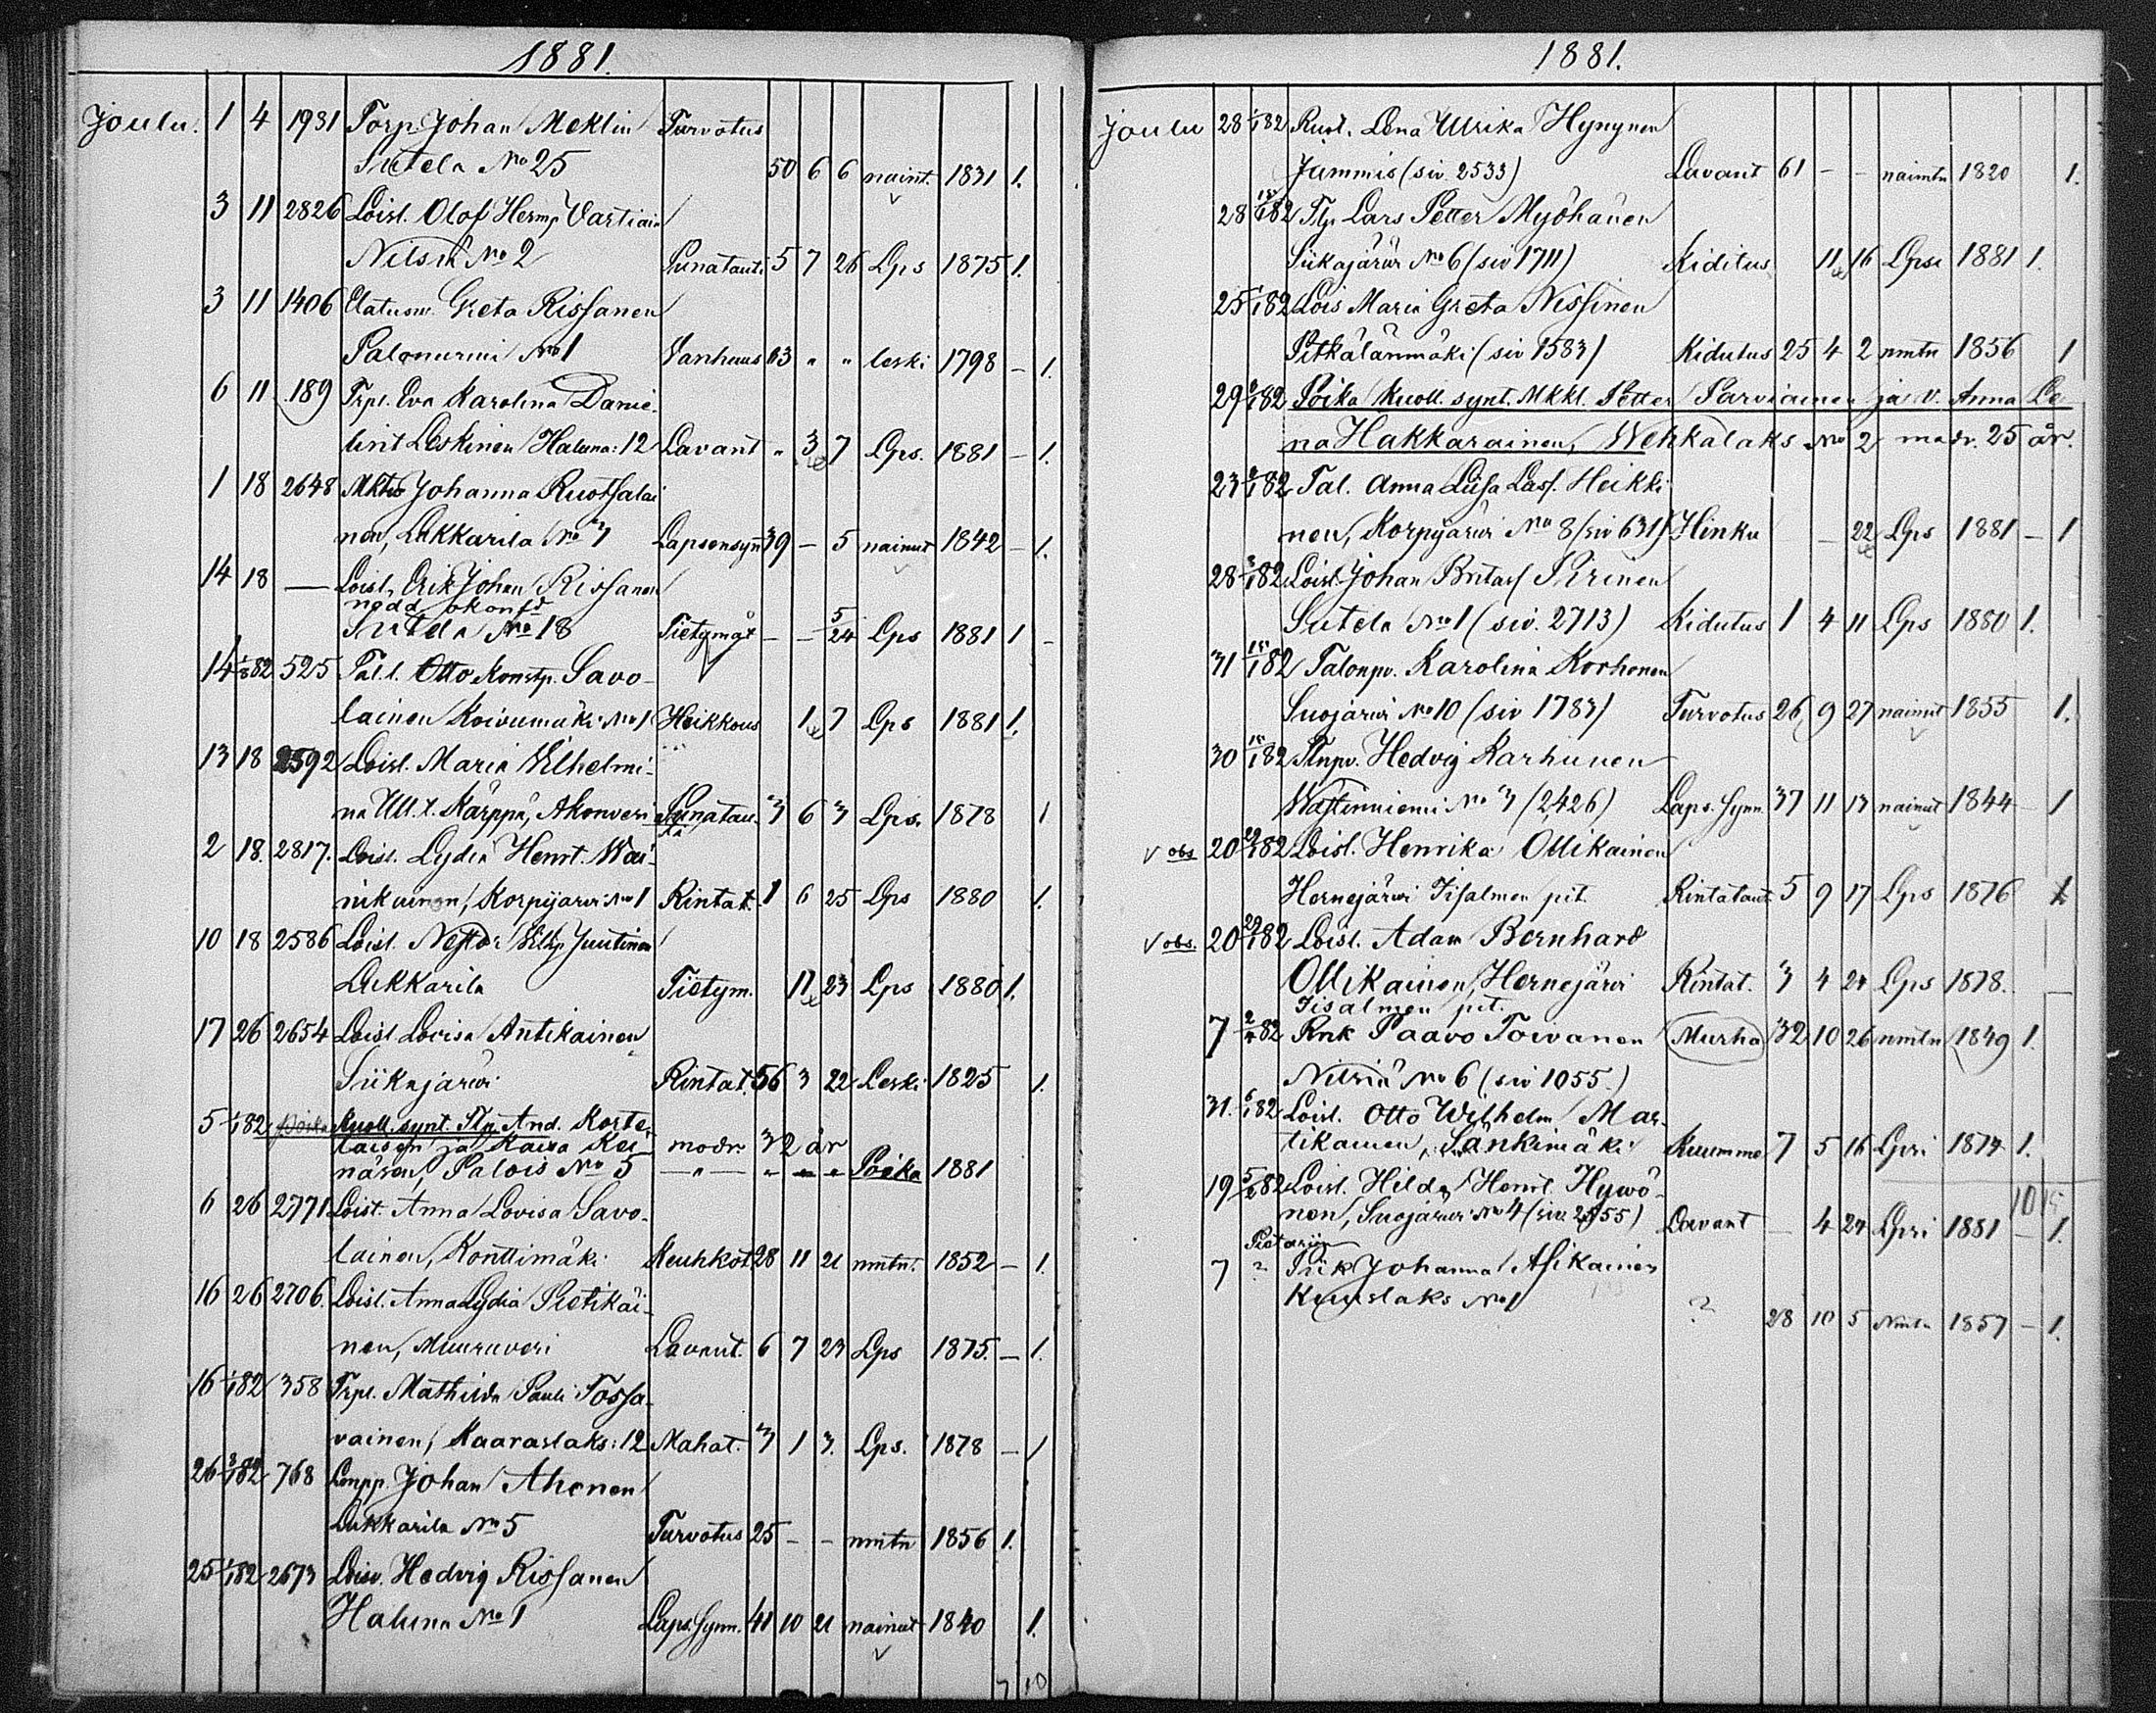 1881.
Joulu. 1 4 1931 Torp. Johan Meklin Turvotus
Sutela No 25 50 6 6 naint. 1831 1.
3 11 2826 Loisl. Olof Hermp Vartiain
Nilsiä No 2 Punatauti 5 7 26 Lps 1875 1.
3 11 1406 Elatusm. Greta Rissanen
Palonurmi No 1 Vanhuus 83 " " leski 1798 – 1.
6 11 189 Trpl. Eva Karolina Danie-
lint Leskinen Haluna: 12 Lavant " 3 7 Lps. 1881 – 1.
1 18 2648 Johanna Ruotsalai
nen, Lukkarila No 7 Lapsensyn 39 – 5 nainut 1842 – 1.
14 18 — Loisl. Erik Johan Rissanen
nödd okonfd
Sutela No 18 Tietymät – – 5 24 Lps 1881 1 -
14 1/1 82 525 Tal.l. Otto Konstp. Savo-
lainen Koivumäki No 1 Heikkous 1 7 Lps 1881 1.
13 18 2592 Loisl. Maria Wilhelmi-
na Ull.t. Kärppä, Akonvesi Punatau- 3 6 3 Lps. 1878 1
ta
2 18. 2817. Loisl. Lydia Henrt. Wäi-
nikainen, Korpijärvi No 1 Rintat. 1 6 25 Lps 1880 1.
10 18 2586 Loisl. Nestor Wilhp Juutinen
Lukkarila Tietym. 11 23 Lps 1880 1.
17 26 2654 Loisl. Lovisa Antikainen
Siikajärvi Rintat. 56 3 22 Leski 1825 1.
5 1/1 82 Poika Kuoll. synt. And. Korte-
laisen ja Kaisa Kei modr. 32 år
näsen, Palois No 5 — " — " " " Poika 1881
6 26 2771 Loist. Anna Lovisa Savo-
lainen, Konttimäki Keuhkot 28 11 21 nmtn. 1852 – 1.
16 26 2706. Loisl. Anna Lydia Pietikäi-
nen, Muuruvesi Lavant. 6 7 23 Lps 1875. – 1.
16 1/1 82 358 Trpl. Mathilda Pauli Tossa-
vainen, Kaaraslaks: 12 Mahat. 3 1 3. Lps. 1878 – 1
26 3/1 82 768 Johan Ahonen
Lukkarila No 5 Turvotus 25 – – nmtn 1856 1.
25 1/1 82 2673 Loisv. Hedvig Rissanen
Haluna No 1 Laps. Synn. 41 10 21 nainut 1840 1.
7 10
1881.
Joulu 28 1/1 82 Lena Ullrika Hynynen
Jummis (siv. 2533) Lavant 61 – – naimtn 1820 1.
28 15/1 82 Tlp. Lars Petter Myöhänen
Siikajärvi No 6 (siv 1711) Kiditus 11 16 Lpsi 1881 1.
25 1/1 82 Lois Maria Greta Nissinen
Pitkälänmäki (siv 1583) Kidutus 25 4 2 nmtn 1856 1
29 8/1 82 Poika kuoll. synt. Mkkl. Petter Parviainen ja v. Anna Le
na Hakkarainen, Wehkalaks No 2 modr. 25 år.
23 8/1 82 Tal. Anna Liisa Lass. Heikki
nen, Korpijärvi No 8 (siv 631) Hinku – 22 Lps 1881 – 1
28 8/1 82 Loisl. Johan Pirinen
Sutela No 1 (siv. 2713) Kidutus 1 4 11 Lps 1880 1.
31 15/1 82 Talonpv. Karolina Korhonen
Suojärvi No 10 (siv 1783) Turvotus 26 9 27 nainut 1855 1.
30 15/1 82 Tlnpv. Hedvig Karhunen
No 3 (2426) Laps. Synn. 37 11 13 nainut 1844 1
v obs 20 29/1 82 Loisl. Henrika Ollikainen
Hernejärvi Iisalmen pit. Rintataut. 5 9 17 Lps 1876 1
v obs. 20 29/1 82 Loisl. Adam Bernhard
Ollikainen, Hernejärvi Rintat. 3 4 24 Lps 1878.
Iisalmen pit.
7 82 Rnk Paavo Toivanen Murha 32 10 26 nmtn 1849 1.
Nilsiä No 6 (siv 1055.)
31. 82 Loisl. Otto Wilhelm Mar-
tikainen, Länkimäki Kuumme 7 5 16 Lpsi 1874 1.
19 82 Loisl. Hilda Henrl. Hyvö-
nen, Suojärvi No 4 (siv. 2155) Lavant – 4 24 Lpsi 1881 – 1.
10 15
Pietariin
7 ? Piik Johanna Asikainen
Kuuslaks No 1 ? 28 10 5 Nmtn 1857 – 1.